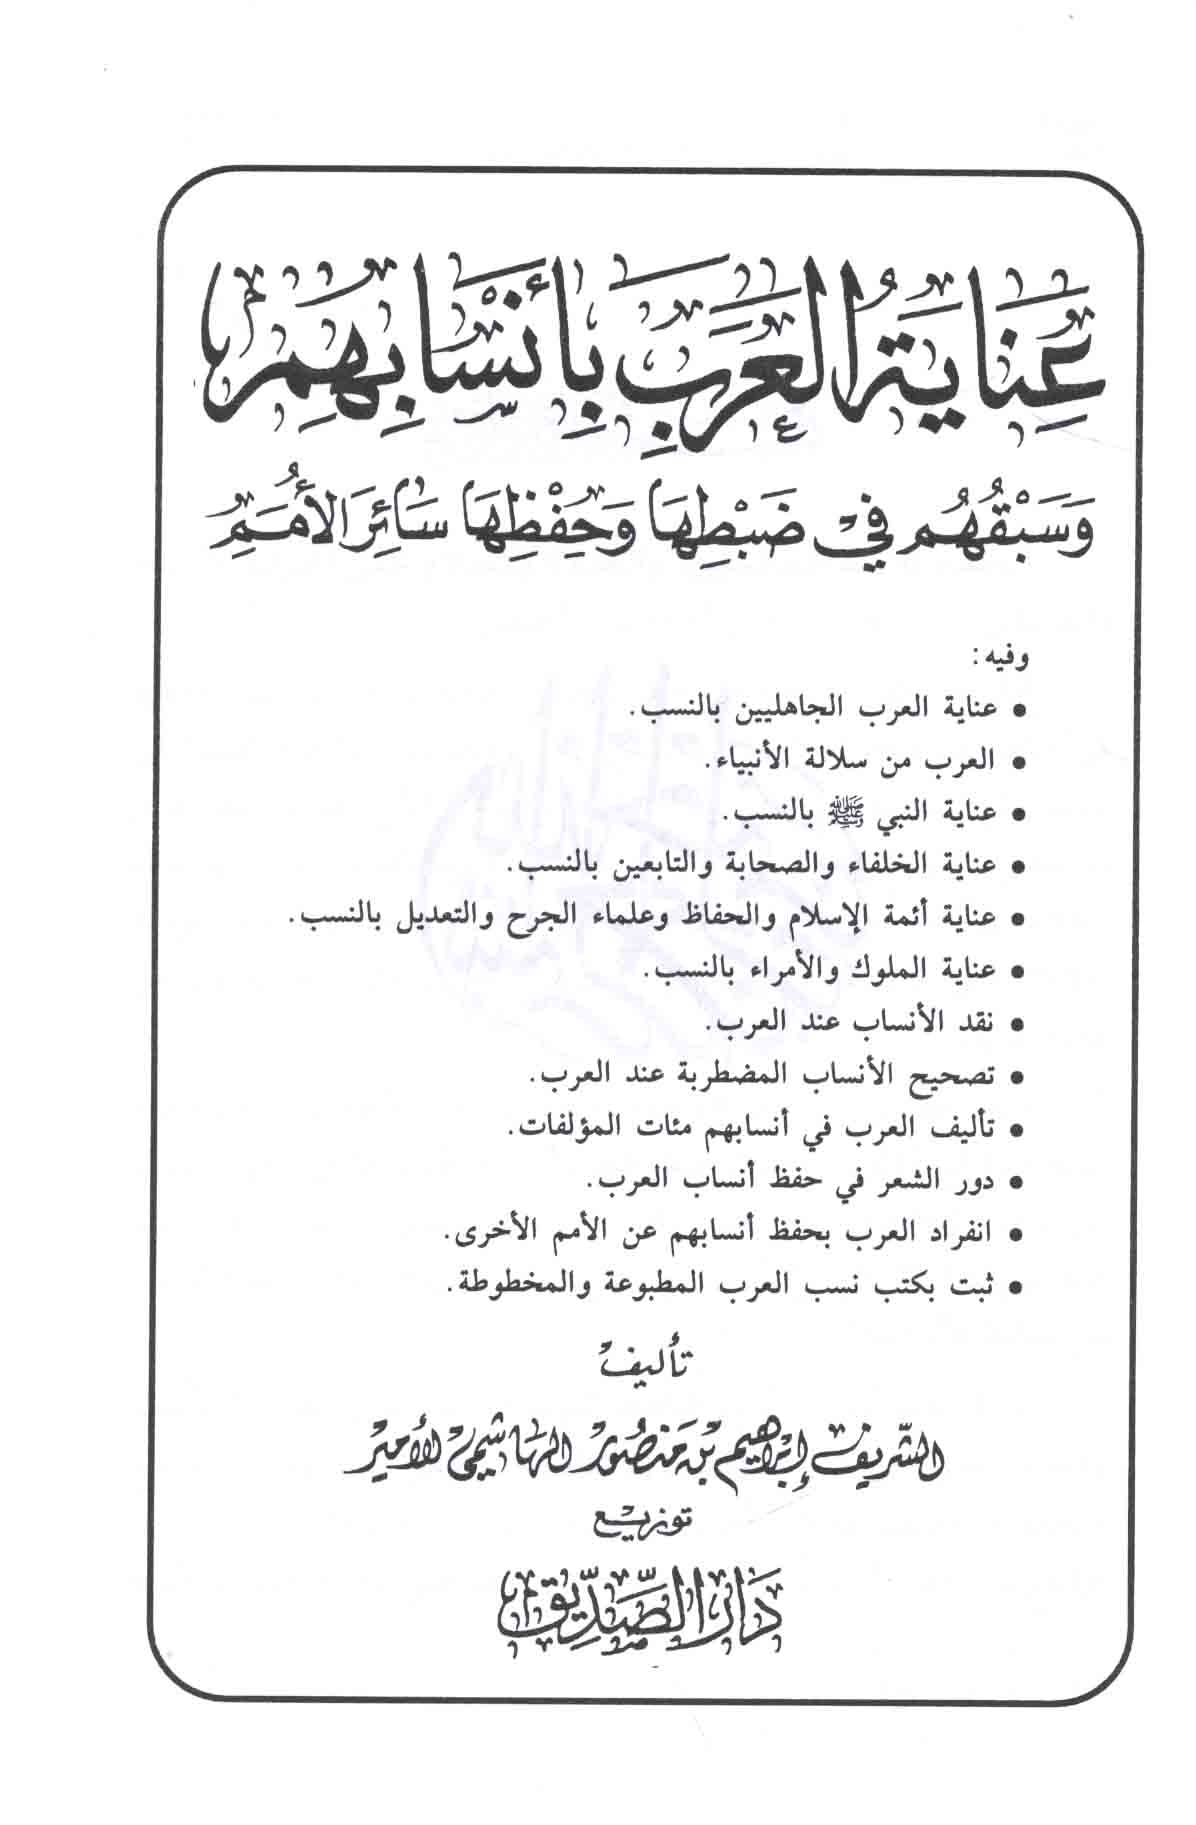 عِنَايَةُ العَرَبِ بِأَنْسَابِهِمْ
وَسَبْقُهُم فِي ضَبْطِهَا وَحِفْظِهَا سَائِرَ الأُمَمِ
وفيه:
• عناية العرب الجاهليين بالنسب.
• العرب من سلالة الأنبياء.
• عناية النبي ﷺ بالنسب.
• عناية الخلفاء والصحابة والتابعين بالنسب.
• عناية أئمة الإسلام والحفاظ وعلماء الجرح والتعديل بالنسب.
• عناية الملوك والأمراء بالنسب.
• نقد الأنساب عند العرب.
• تصحيح الأنساب المضطربة عند العرب.
• تأليف العرب في أنسابهم مئات المؤلفات.
• دور الشعر في حفظ أنساب العرب.
• انفراد العرب بحفظ أنسابهم عن الأمم الأخرى.
• ثبت بكتب نسب العرب المطبوعة والمخطوطة.
تأليف
الشريف إبراهيم بن منصور الهاشمي الأمير
توزيع
دَارُ الصِّدِّيق